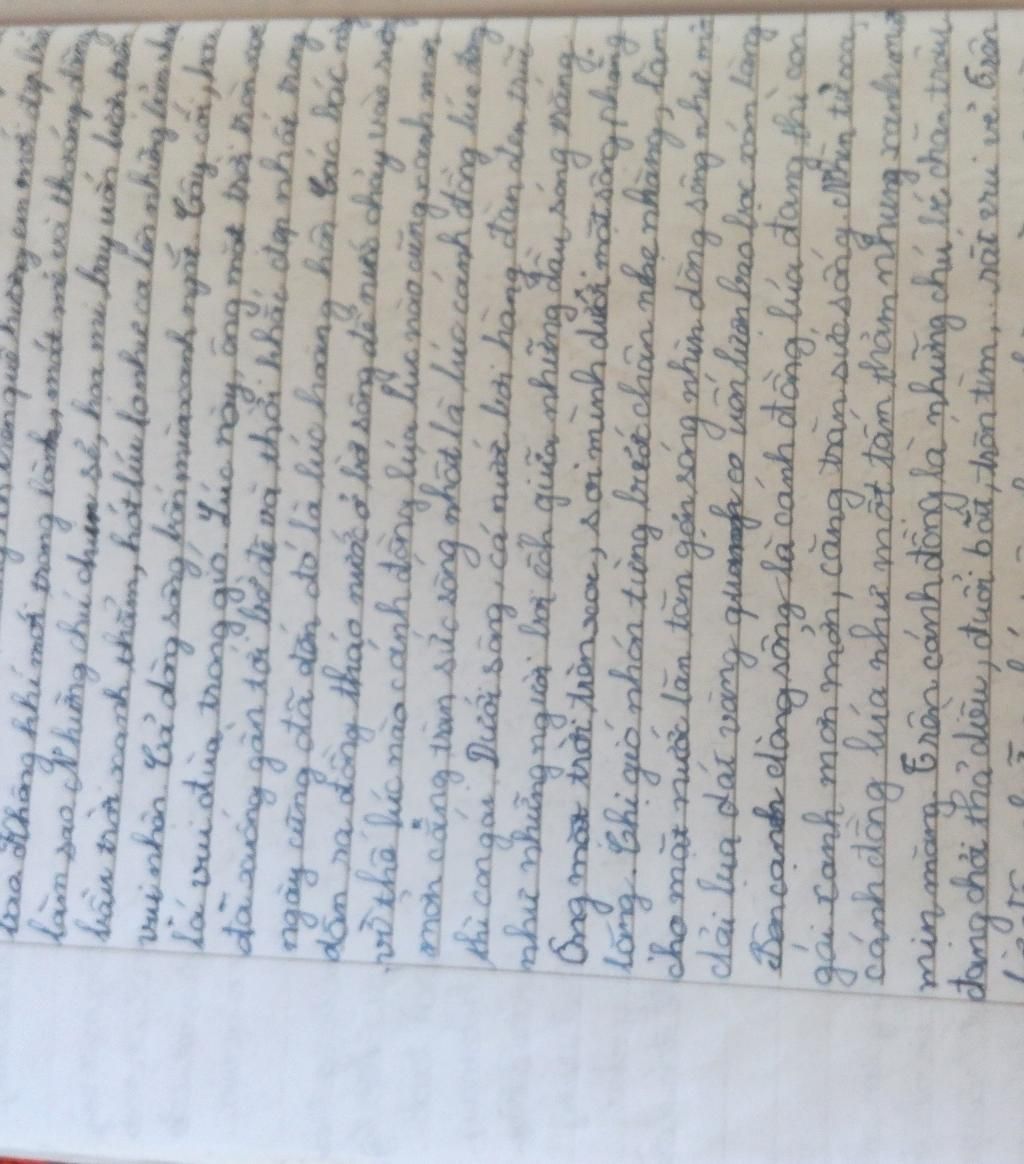 hoa Không khí mới trong lành, mát mẻ vì thoáng đãng
làm sao Những chú chim sẻ, hoạ mi bay uốn lượn trên
bầu trời xanh thẳm, hót líu lo như ca lên những
vui nhộn Cả dòng sông bốn mùa xanh ngắt Cây cối, hoa
lá vui đùa trong gió. Lúc này, ông mặt trời tròn xoe
đã xuống gần tới bờ đê và thời khắc đẹp nhất trong
ngày cũng đã đến đó là lúc hoàng hôn Các bác nông
dân ra đồng tháo nước ở bờ sông để nước chảy vào ruộng
vì thế lúc nào cánh đồng lúa lúc nào cũng xanh mơn
mởn căng tràn sức sống nhất là lúc cánh đồng lúa đang
thì con gái. Dưới sông, cá nước bơi hàng đàn đen trũi
như những người bơi ếch giữa những đầu sóng trắng.
Ông mặt trời tròn xoe, soi mình dưới mặt sông phẳng
lặng. Chị gió nhón từng bước chân nhẹ nhàng, làm
cho mặt nước lăn tăn gợn sóng nhìn dòng sông như một
dải lụa dát vàng uốn lượn bao bọc xóm làng
Bên cạnh dòng sông là cánh đồng lúa đang thì con
gái xanh mơn mởn, căng tràn sức sống. Nhìn từ xa,
cánh đồng lúa như một tấm thảm nhung xanh mượt
mịn màng Trên cánh đồng là những chú bé chăn trâu
đang chơi thả diều, đuổi bắt, trốn tìm, rất vui vẻ Trên